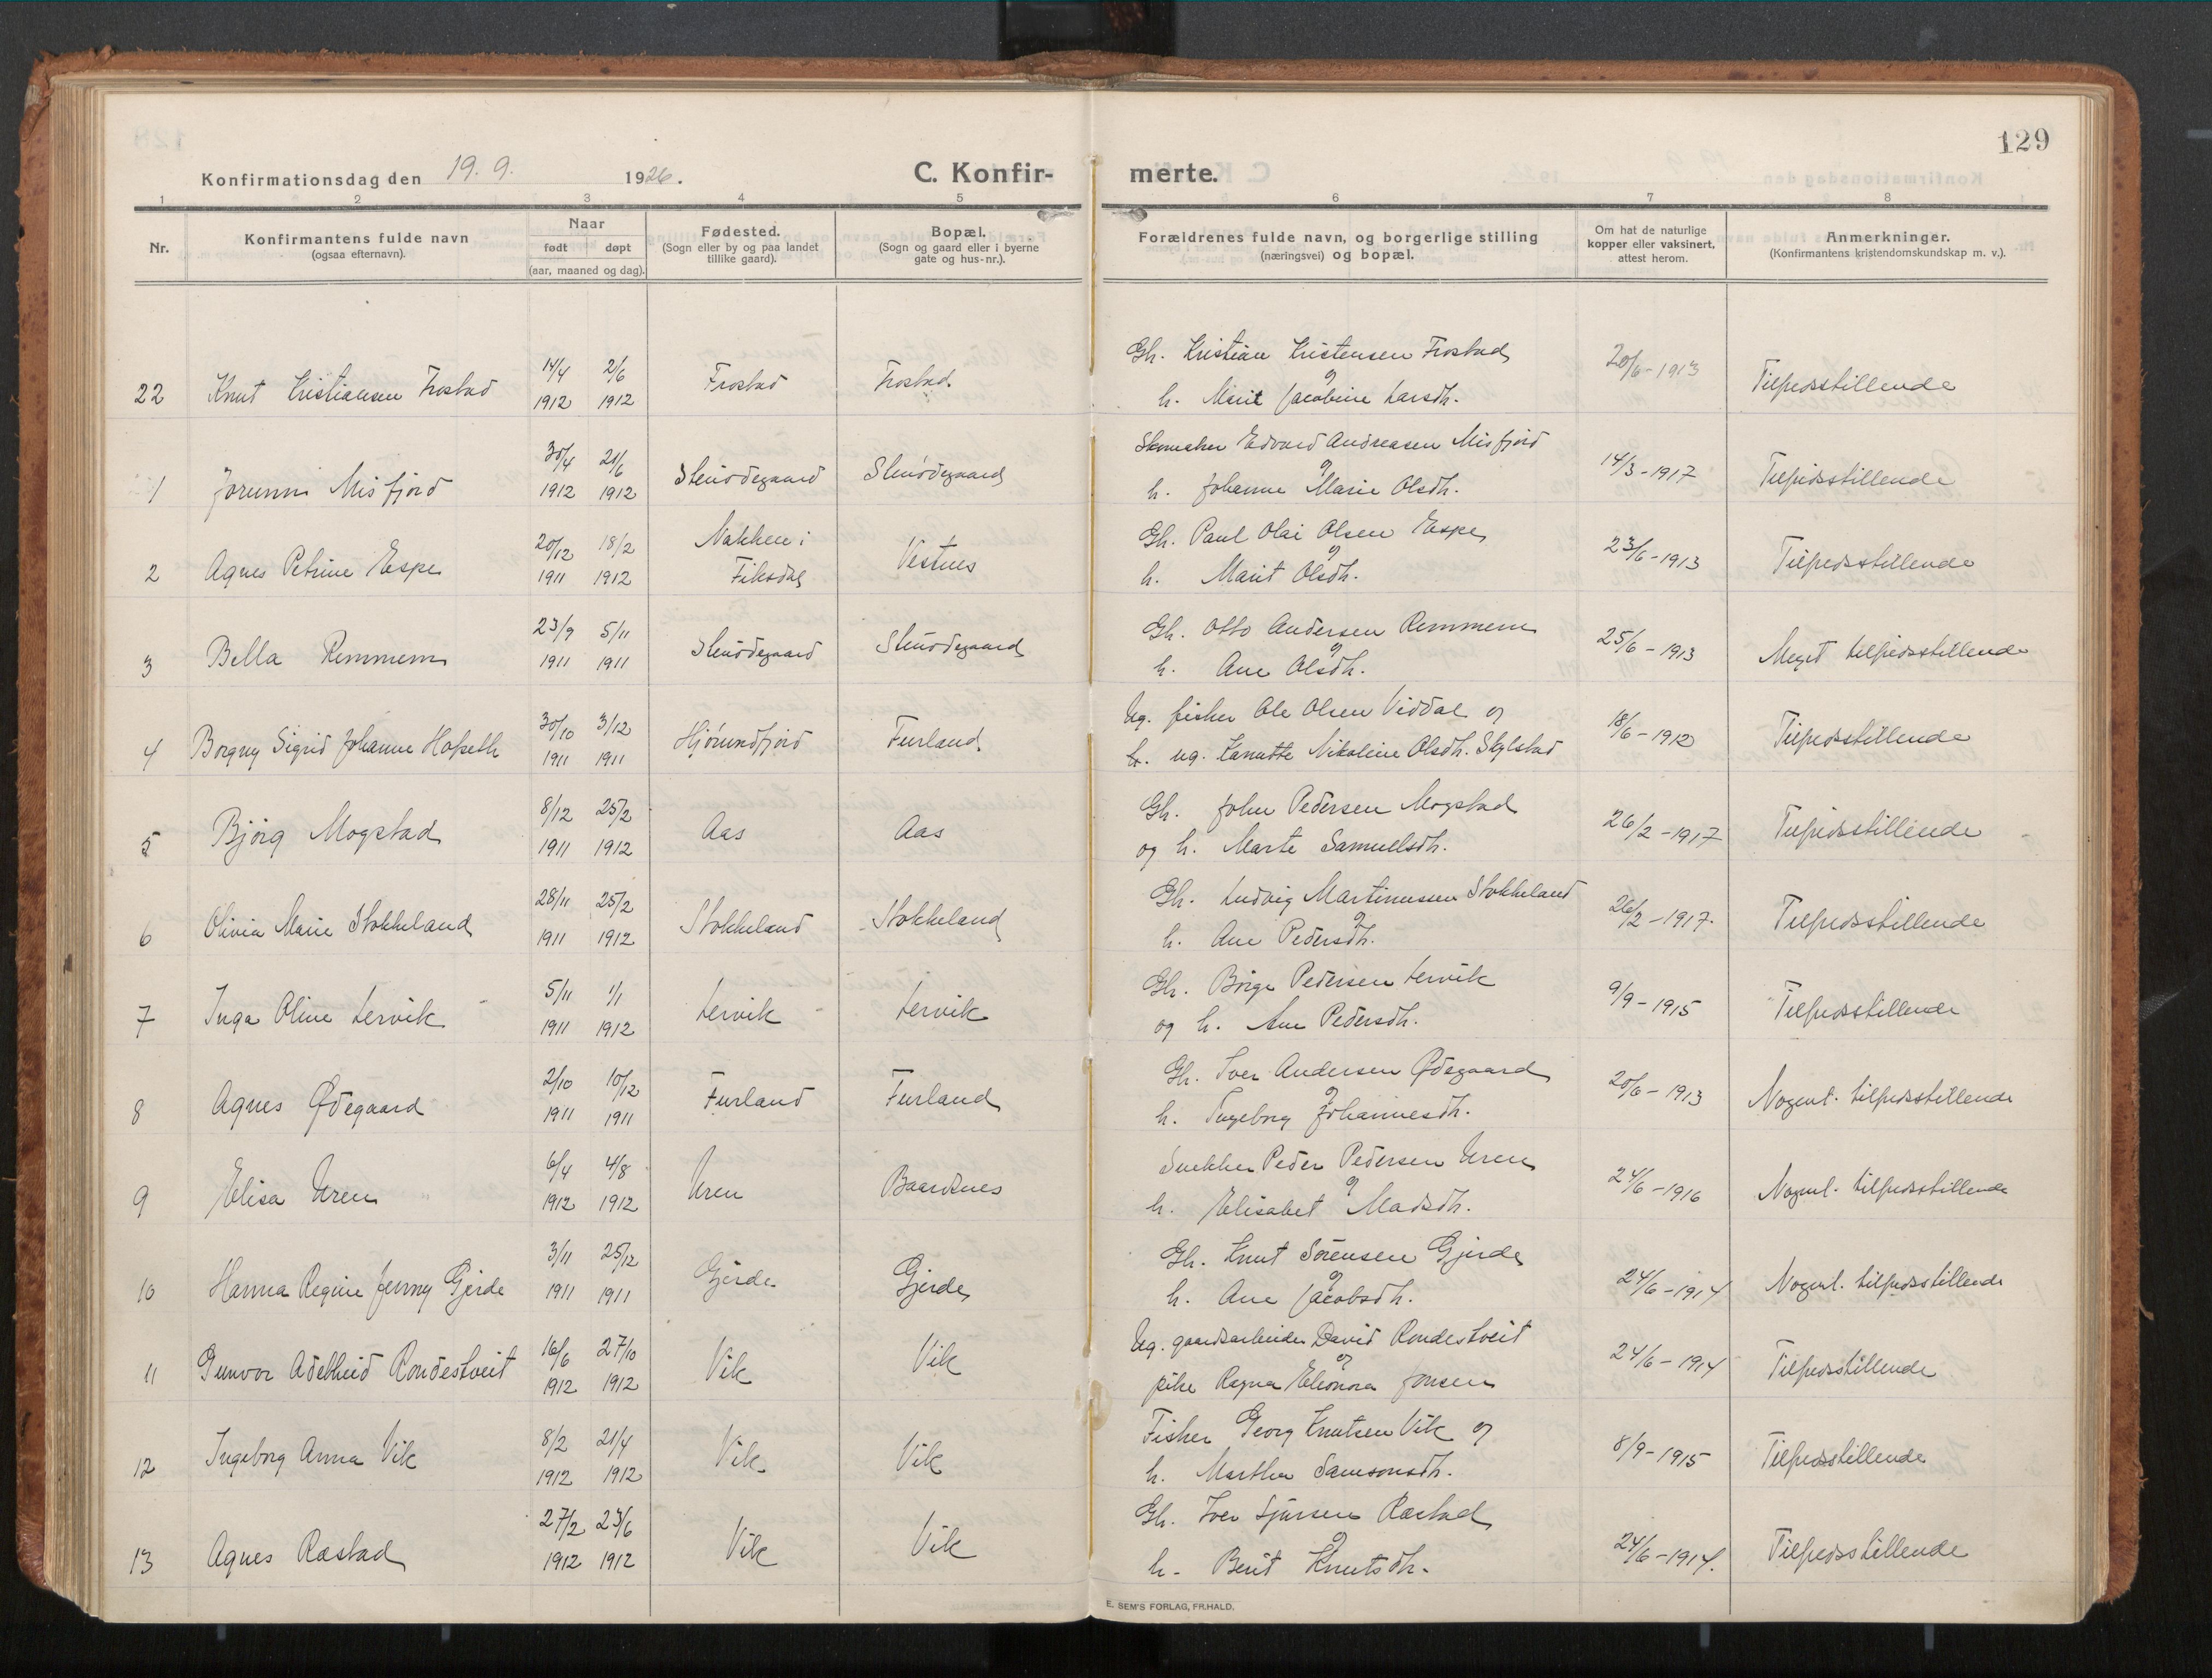 129
Konfirmationsdag den 19. 9. 1926. C. Konfirmerte.
1 2 3 4 5 6 7 8
Nr.
Konfirmantens fulde navn
(ogsaa efternavn).
Naar
født døpt
(aar, maaned og dag).
Fødested.
(Sogn eller by og paa landet
tillike gaard).
Bopæl.
(Sogn og gaard eller i byerne
gate og hus-nr.).
Forældrenes fulde navn, og borgerlige stilling
(næringsvei) og bopæl.
Om hat de naturlige
kopper eller vaksinert,
attest herom.
Anmerkninger.
(Konfirmantens kristendomskundskap m. v.).
22 Knut Kristiansen Frostad 14/4 1912 2/6 1912 Frostad Frostad
Gh. Kristian Kristensen Frostad og
h. Marit Jacobine Larsdh.
20/6-1913 Tilfredsstillende
1 Jorunn Misfjord 30/4 1912 21/6 1912 Stenødegaard Stenødegaard
Skomaker Edvard Andreasen Misfjord og
h. Johanne Marie Olsdh.
14/3-1917 Tilfredsstillende
2 Agnes Petrine Espe 20/12 1911 18/2 1912 Nakken i Fiksdal Vestnes
Gh. Paul Olai Olsen Espe og
h. Marit Olsdh.
23/6-1913 Tilfredsstillende
3 Bella Remmem 23/9 1911 5/11 1911 Stenødegaard Stenødegaard
Gh. Otto Andersen Remmem og
h. Ane Olsdh.
25/6-1913 Meget tilfredsstillende
4 Borgny Sigrid Johanne Hofseth 30/10 1911 3/12 1911 Hjørundfjord Furland
Ug. fisker Ole Olsen Viddal og
h. ug. Kanutte Nikoline Olsdh. Skylstad
18/6-1912 Tilfredsstillende
5 Bjørg Mogstad 8/12 1911 25/2 1912 Aas Aas
Gh. John Pedersen Mogstad
og h. Marte Samuelsdh.
26/2-1917 Tilfredsstillende
6 Olivia Marie Stokkeland 28/11 1911 25/2 1912 Stokkeland Stokkeland
Gh. Ludvig Martinussen Stokkeland og
h. Ane Pedersdh.
26/2-1917. Tilfredsstillende
7 Inga Oline Lervik 5/11 1911 1/1 1912 Lervik Lervik
Gh. Børge Pedersen Lervik
og h. Ane Pedersdh.
9/9-1915 Tilfredsstillende
8 Agnes Ødegaard 2/10 1911 10/12 1911 Furland Furland
Gh. Iver Andersen Ødegaard og
h. Ingeborg Johannesdh.
20/6-1913 Nogenl. tilfredsstillende
9 Elisa Uren 6/4 1912 4/8 1912 Uren Baardsnes
Snekker Peder Pedersen Uren og
h. Elisabet Madsdh.
24/6-1916 Nogenl. tilfredsstillende
10 Hanna Regine Jenny Gjerde 3/11 1911 25/12 1911 Gjerde Gjerde
Gh. Knut Sørensen Gjerde og
h. Ane Jacobsdh.
24/6-1914 Nogenl. tilfredsstillende
11 Gunvor Adelheid Rondestveit 16/6 1912 27/10 1912 Vik Vik
Ug. gaardsarbeider David Rondestveit og
pike Ragna Eleonora Jonsen
24/6-1914 Tilfredsstillende
12 Ingeborg Anna Vik 8/2 1912 21/4 1912 Vik Vik
Fisker Georg Knutsen Vik og
h. Marthe Samsonsdh.
8/9-1915 Tilfredsstillende
13 Agnes Rastad 27/2 1912 23/6 1912 Vik Vik
Gh. Iver Sjursen Rastad og
h. Berit Knutsdh.
24/6-1914. Tilfredsstillende
E. SEM'S FORLAG, FR.HALD.